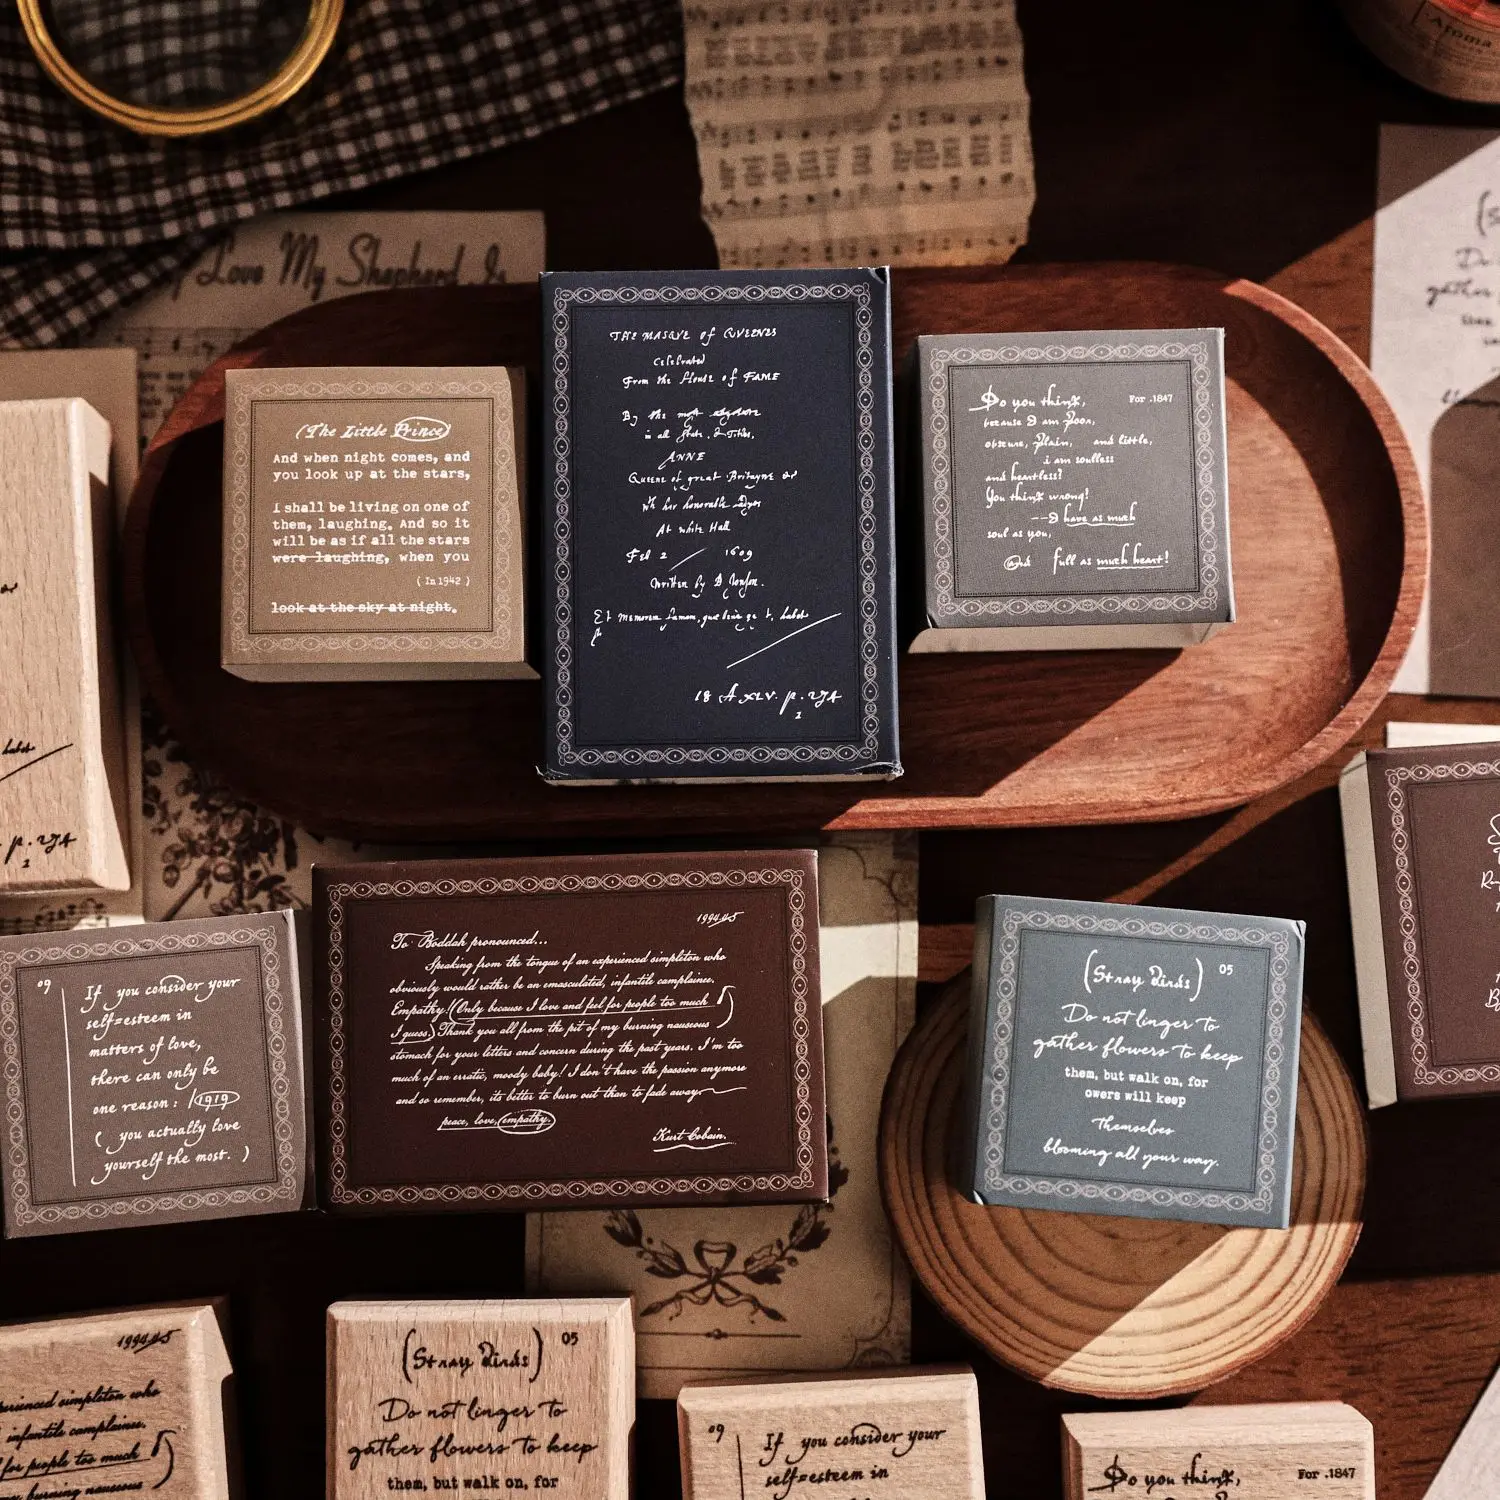 Aroma
Love My Shepherd Is
(The Little Prince)
And when night comes, and
you look up at the stars,
i shall be living on one of
them, laughing. And so it
will be as if all the stars
were laughing, when you
( In 1942 )
look at the sky at night.
THE MASQVE of QVEENES
Celebrated
From the House of FAME
By the most
in all State, & Titles,
ANNE
Queene of great Britayne
wth her honorable Ladyes
At white Hall
Feb 2 / 1609
Written by B Jonson.
Et memorem famam, quae bene habet
18 A XLV. p. 274
2
Do you think, For .1847
because I am poor,
obscure, plain, and little,
i am soulless
and heartless?
You think wrong!
--I have as much
soul as you,
and full as much heart!
gather
habet
p. 274
2
09
If you consider your
self=esteem in
matters of love,
there can only be
one reason : 1919
( you actually love
yourself the most. )
1994.4.5
To Boddah pronounced...
Speaking from the tongue of an experienced simpleton who
obviously would rather be an emasculated, infantile complainee.
Empathy!(Only because I love and feel for people too much
I guess) Thank you all from the pit of my burning nauseous
stomach for your letters and concern during the past years. I'm too
much of an erratic, moody baby! I don't have the passion anymore
and so remember, its better to burn out than to fade away.
peace, love, empathy.
Kurt Cobain.
(Stray Birds) 05
Do not linger to
gather flowers to keep
them, but walk on, for
owers will keep
Themselves
blooming all your way.
1994.4.5
rienced simpleton who
infantile complainee.
for people too much
burning nauseous
(Stray Birds) 05
Do not linger to
gather flowers to keep
them, but walk on, for
09
If you consider your
self=esteem in
Do you think, For .1847